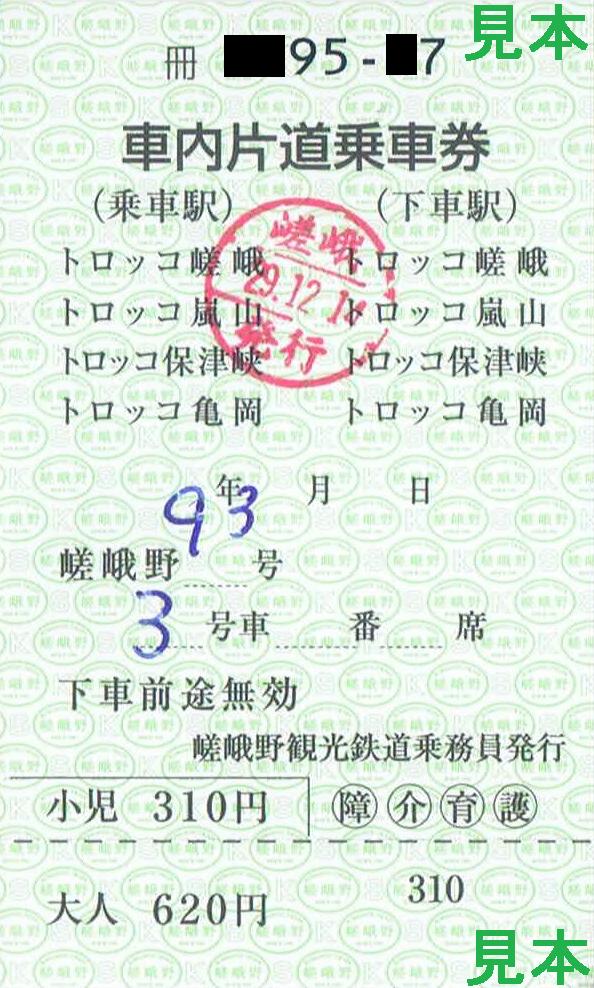 見本
冊 95-7
車内片道乗車券
(乗車駅) (下車駅)
トロッコ嵯峨 トロッコ嵯峨
トロッコ嵐山 トロッコ嵐山
トロッコ保津峡 トロッコ保津峡
トロッコ亀岡 トロッコ亀岡
嵯峨
29.12.1
発行
年 月 日
93
嵯峨野 号
3 号車 番 席
下車前途無効
嵯峨野観光鉄道乗務員発行
小児 310円 障 介 育 護
大人 620円 310
見本